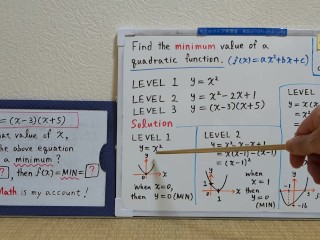 Find the minimum value of a
quadratic function. (f(x)=ax²+bx+c)
LEVEL 1 y=x²
LEVEL 2 y=x²-2x+1
LEVEL 3 y=(x-3)(x+5)
Solution
LEVEL 1
y=x²
y
x
0
when
x=0,
then y=0 (MIN)
LEVEL 2
y=x²-x-x+1
=x(x-1)-(x-1)
=(x-1)²
y
1
1
x
when
x=1
then
y=0 (MIN)
y
-1
-16
=(x-3)(x+5)
what value of x,
the above equation
a minimum?
?, then f(x)=MIN=?
Math is my account!